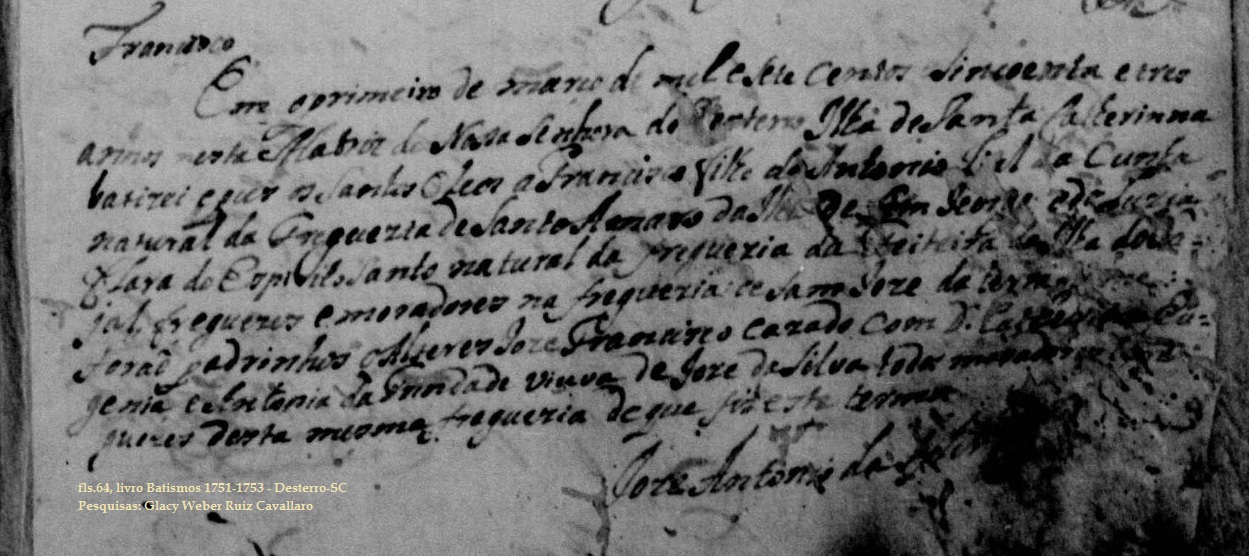 Francisco
Em o primeiro de março de mil e sete centos sincoenta e tres
annos nesta Matriz de Nossa Senhora do Desterro Ilha de Santa Catherinna
batizei e pus os Santos Oleos a Francisco filho de Antonio da Cunha
natural da Freguezia de Santo Amaro da Ilha de Sam Jorge e de Luzia
Clara do Espirito Santo natural da freguezia da da Ilha do Fa-
jal freguezes e moradores na freguezia de Sam Joze da terra
forão padrinhos o Alferes Joze Francisco cazado com D. Eu-
genia e Antonia da Trindade viuva de Joze da Silva
guezes desta mesma freguezia de que fis este termo
Joze Antonio da
fls.64, livro Batismos 1751-1753 - Desterro-SC
Pesquisas: Glacy Weber Ruiz Cavallaro